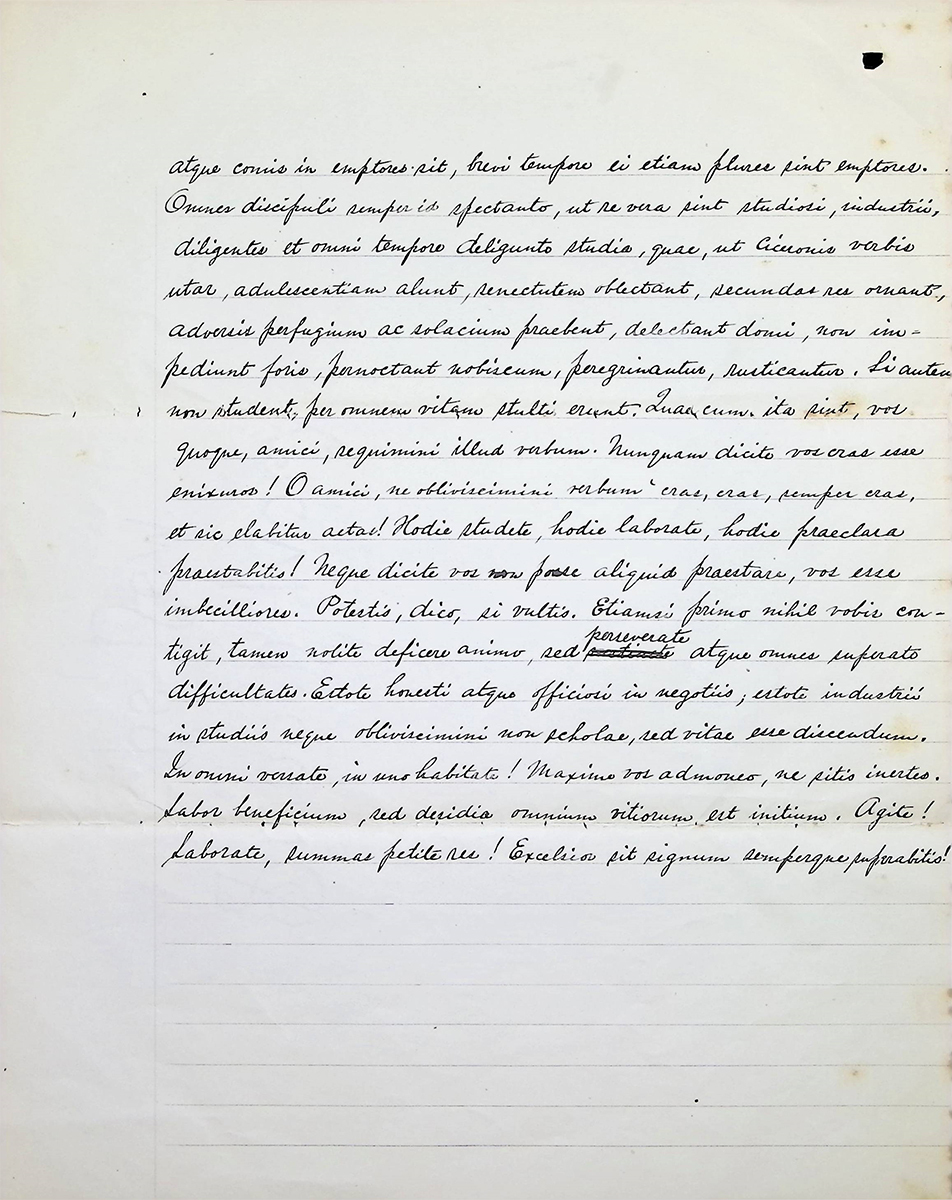 atque comis in emptores sit, brevi tempore ei etiam plures sint emptores.
Omnes discipuli semper id spectanto, ut re vera sint studiosi, industrii,
diligentes et omni tempore deligunto studia, quae, ut Ciceronis verbis
utar, adulescentiam alunt, senectutem oblectant, secundas res ornant,
adversis perfugium ac solacium praebent, delectant domi, non im=
pediunt foris, pernoctant nobiscum, peregrinantur, rusticantur. Si autem
non student, per omnem vitam stulti erunt. Quae cum ita sint, vos
quoque, amici, sequimini illud verbum. Nunquam dicite vos cras esse
enixuros! O amici, ne obliviscimini verbum cras, cras, semper cras,
et sic elabitur aetas! Hodie studete, hodie laborate, hodie praeclara
praestabitis! Neque dicite vos non posse aliquid praestare, vos esse
imbecilliores. Potestis, dico, si vultis. Etiamsi primo nihil vobis con-
tigit, tamen nolite deficere animo, sed perseverate atque omnes superate
difficultates. Estote honesti atque officiosi in negotiis; estote industrii
in studiis neque obliviscimini non scholae, sed vitae esse discendum.
In omni versate, in uno habitate! Maxime vos admoneo, ne sitis inertes.
Labor beneficium, sed desidia omnium vitiorum est initium. Agite!
Laborate, summas petite res! Excelsior sit signum semperque superabitis!